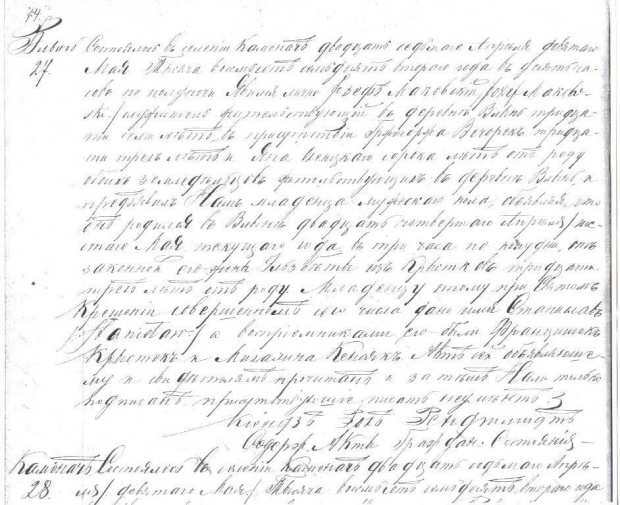 44.
Состоялось въ селеніи Каменачъ двадцать седьмаго Апрѣля девятаго
27. Мая Тысяча восемьсотъ семьдесятъ втораго года въ десять ча-
совъ по полуночи Явился лично Іозефъ Маковскій Jozef Makow-
ski / жительствующій въ деревнѣ тридца-
ти семи лѣтъ въ присутствіи тридца-
ти трехъ лѣтъ и Яна сорока лѣтъ отъ роду
обоихъ земледѣльцовъ жительствующихъ въ деревнѣ и
предъявилъ Намъ младенца мужескаго пола, объявляя, что
онъ родился въ двадцать четвертаго Апрѣля / ше-
стаго Мая текущаго года, въ три часа по полудни, отъ
законной его жены Эльзбеты изъ тридцати
трехъ лѣтъ отъ роду Младенцу этому при Святомъ
Крещеніи совершенномъ сего числа дано имя Станиславъ
/Stanisław/ а воспріемниками его были Францишекъ
и Михалина Актъ сей объявляюще-
му и свидѣтелямъ прочитанъ и затѣмъ Нами только
подписанъ присутствующіе писать неумѣютъ
Ксіондзъ
Содерж. Акты Граждан. Состоянія
Каменачъ Состоялось въ селеніи Каменачъ двадцать седьмаго Апрѣ-
28. ля / девятаго Мая / Тысяча восемьсотъ семьдесятъ втораго года